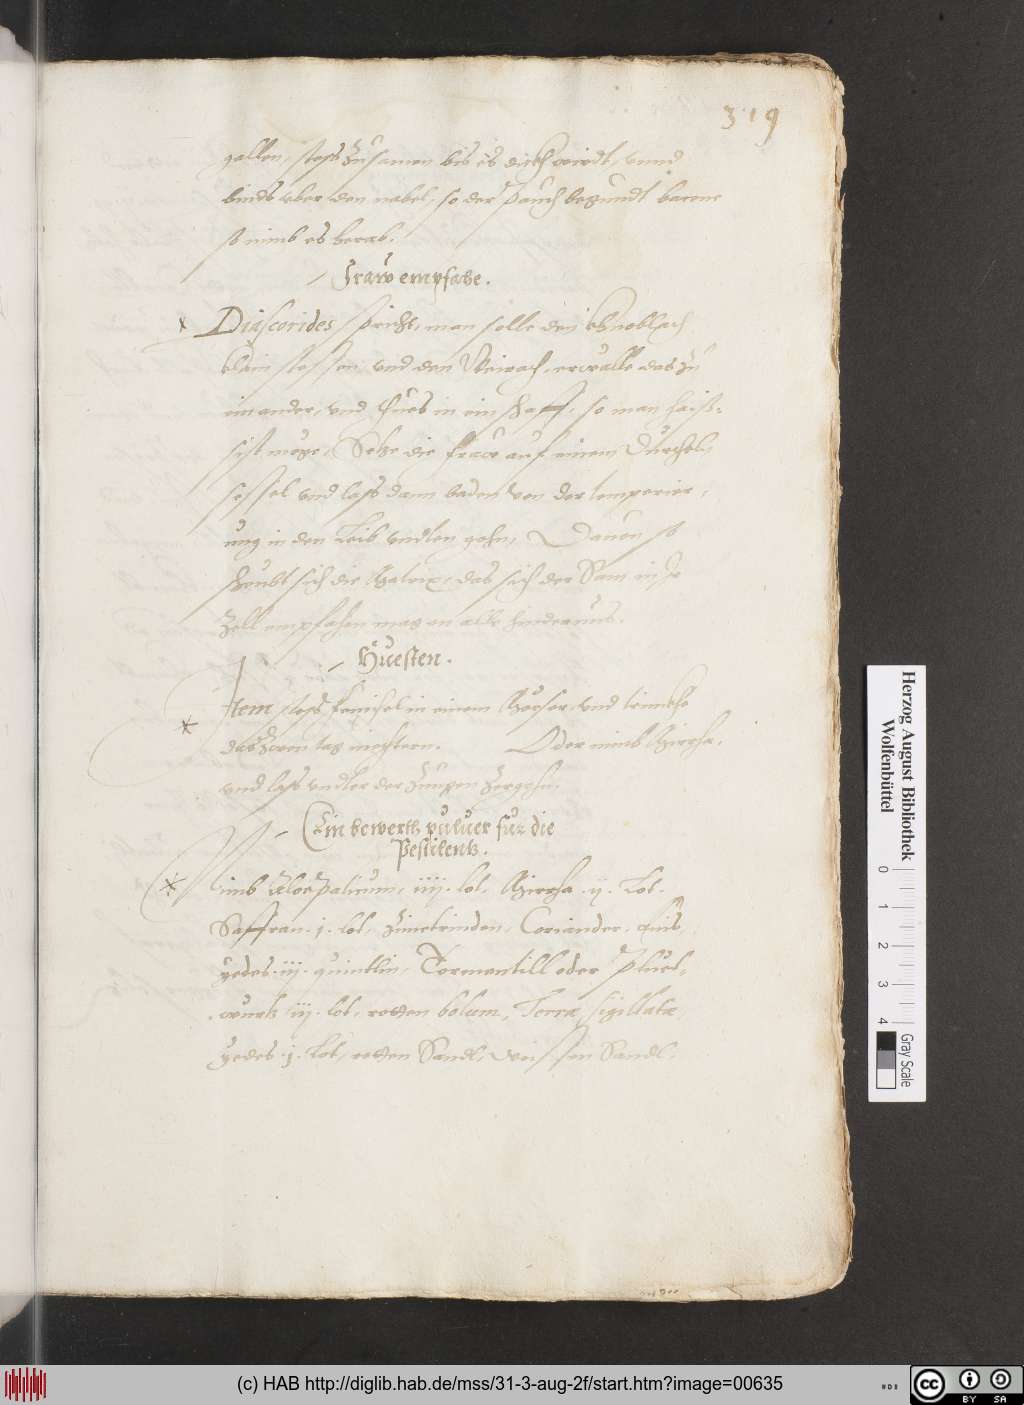 319
gallen, stoss zusamen bis es dickh wirdt, vnnd
binds vber den nabel, so der pauch begundt
so nimb es herab.
Fraw empfahe.
Diascorides spricht, man solle den khnoblach
klain stossen, vnd den Weirach, erwalle das zu
ainander, vnd thues in ein schaff, so man haiss
Setze die fraw auf einem
sessel vnd lass dann baden von der temperier-
ung in den Leib vndten gehn, Dauon so
sich die Matrix, das sich der Sam in
Zell empfahen mag on alle hindernus.
Huesten.
Item stoss fenichel in einem Morser, vnd trinckhs
das zwen tag niechtern. Oder nimb Mirrha,
vnd lass vndter der Zungen zergehn.
Ein bewerth puluer fur die
Pestilentz.
Nimb Aloepaticum, iiij. lot, Mirrha .ij. Lot.
Saffran .j. lot, Zimetrinden, Coriander,
yedes .iij. quintlin, Tormentill oder pluet-
wurtz iij. lot, rotten bolum, Terræ sigillatæ,
yedes .j. Lot, rotten Sandl, weissen Sandl.
Herzog August Bibliothek
Wolfenbüttel
0 1 2 3 4
Gray Scale
(c) HAB http://diglib.hab.de/mss/31-3-aug-2f/start.htm?image=00635
cc BY SA